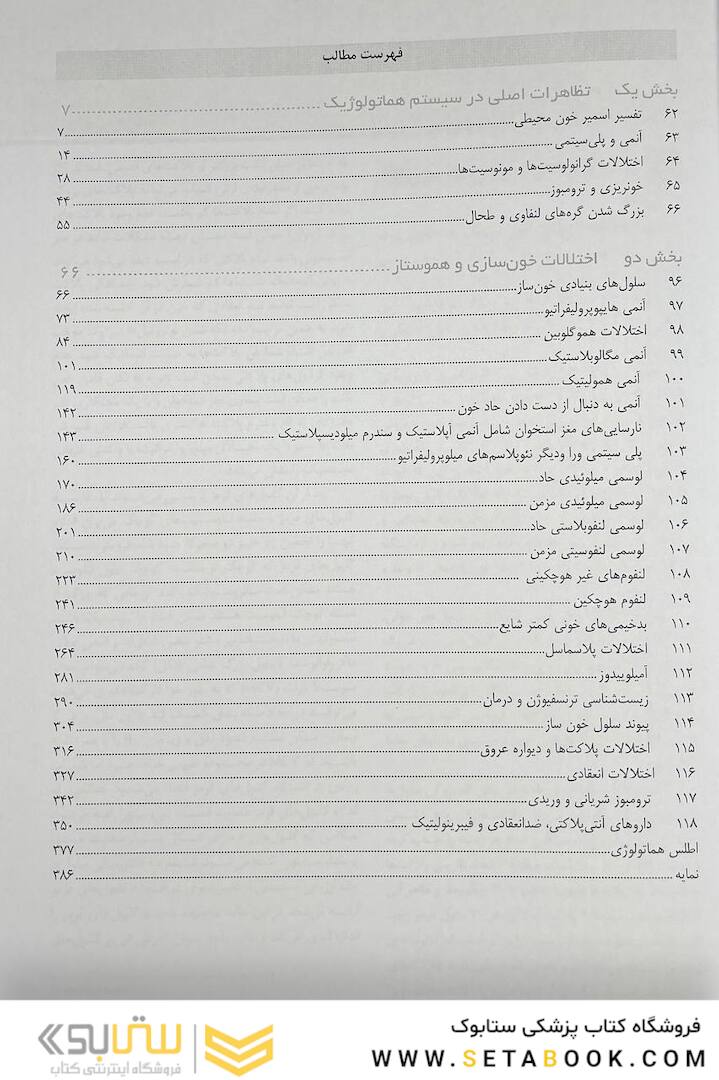 فهرست مطالب
بخش یک تظاهرات اصلی در سیستم هماتولوژیک ۷
۶۲ تفسیر اسمیر خون محیطی ۷
۶۳ آنمی و پلی‌سیتمی ۱۴
۶۴ اختلالات گرانولوسیت‌ها و مونوسیت‌ها ۲۸
۶۵ خونریزی و ترومبوز ۴۴
۶۶ بزرگ شدن گره‌های لنفاوی و طحال ۵۵
بخش دو اختلالات خون‌سازی و هموستاز ۶۶
۹۶ سلول‌های بنیادی خون‌ساز ۶۶
۹۷ آنمی هایپوپرولیفراتیو ۷۳
۹۸ اختلالات هموگلوبین ۸۴
۹۹ آنمی مگالوبلاستیک ۱۰۱
۱۰۰ آنمی همولیتیک ۱۱۹
۱۰۱ آنمی به دنبال از دست دادن حاد خون ۱۴۲
۱۰۲ نارسایی‌های مغز استخوان شامل آنمی آپلاستیک و سندرم میلودیسپلاستیک ۱۴۳
۱۰۳ پلی سیتمی ورا ودیگر نئوپلاسم‌های میلوپرولیفراتیو ۱۶۰
۱۰۴ لوسمی میلوئیدی حاد ۱۷۰
۱۰۵ لوسمی میلوئیدی مزمن ۱۸۶
۱۰۶ لوسمی لنفوبلاستی حاد ۲۰۱
۱۰۷ لوسمی لنفوسیتی مزمن ۲۱۰
۱۰۸ لنفوم‌های غیر هوچکینی ۲۲۳
۱۰۹ لنفوم هوچکین ۲۴۱
۱۱۰ بدخیمی‌های خونی کمتر شایع ۲۴۶
۱۱۱ اختلالات پلاسماسل ۲۶۴
۱۱۲ آمیلوییدوز ۲۸۱
۱۱۳ زیست‌شناسی ترنسفیوژن و درمان ۲۹۰
۱۱۴ پیوند سلول خون ساز ۳۰۴
۱۱۵ اختلالات پلاکت‌ها و دیواره عروق ۳۱۶
۱۱۶ اختلالات انعقادی ۳۲۷
۱۱۷ ترومبوز شریانی و وریدی ۳۴۲
۱۱۸ داروهای آنتی‌پلاکتی، ضدانعقادی و فیبرینولیتیک ۳۵۰
اطلس هماتولوژی ۳۷۷
نمایه ۳۸۶
فروشگاه کتاب پزشکی ستابوک
WWW.SETABOOK.COM
ستابوک
فروشگاه اینترنتی کتاب